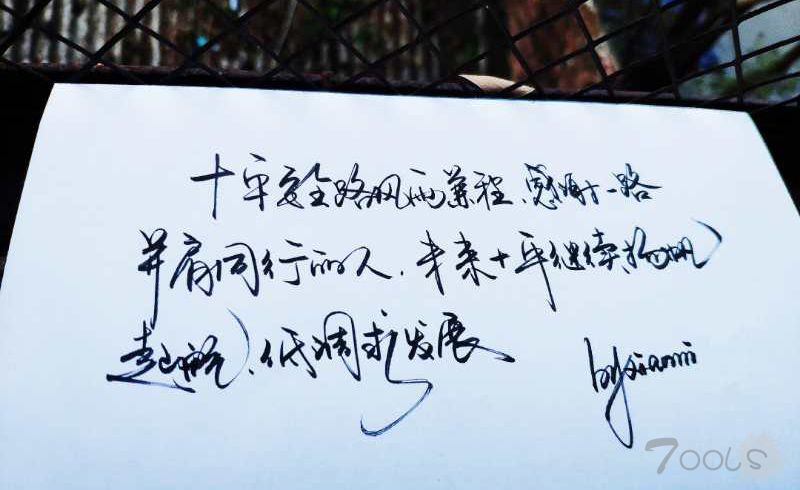 十年安全路风雨兼程、感谢一路
并肩同行的人、未来十年继续扬帆
起航、低调求发展
by xianni
7OOLS